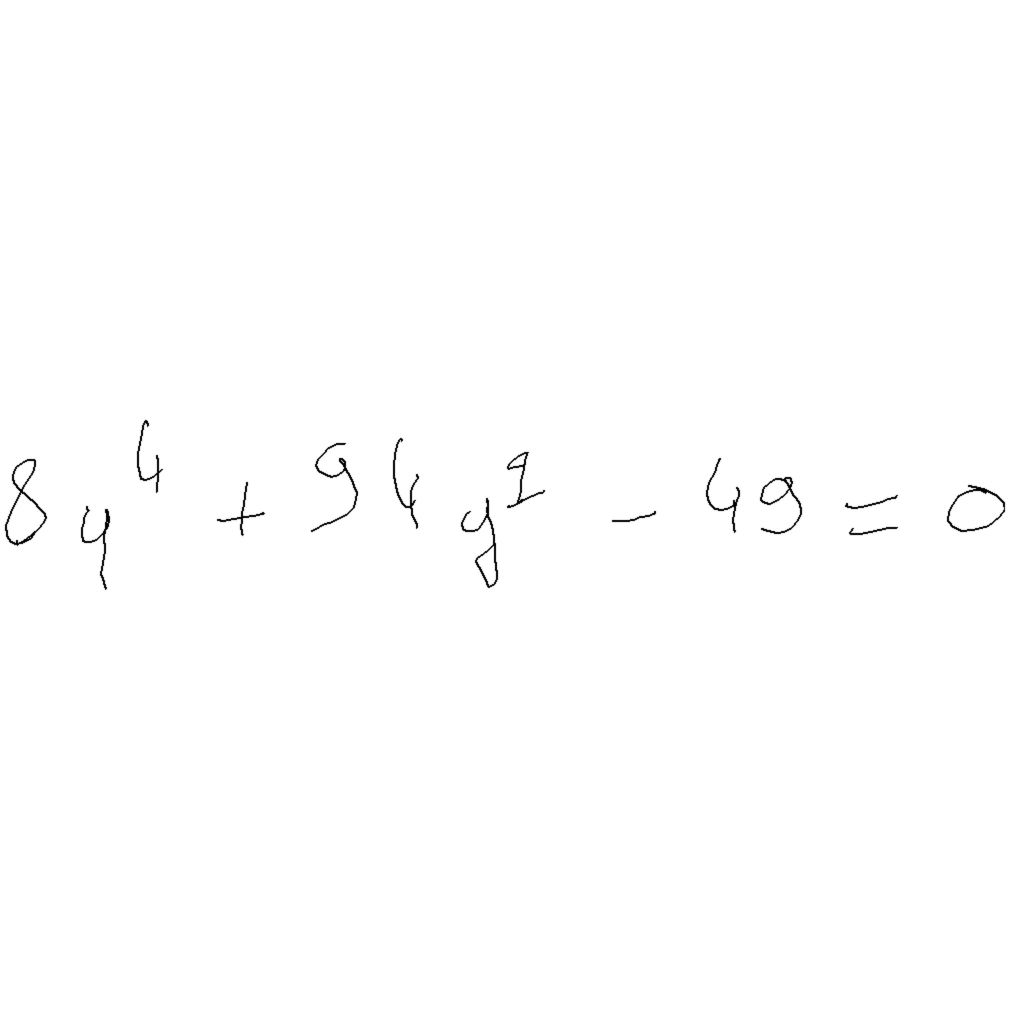 8y⁴ + 94y² - 49 = 0